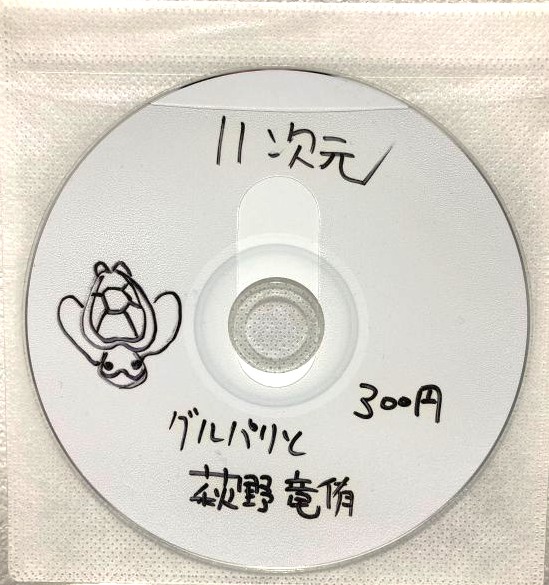 11次元
300円
グルパリと
萩野竜侑